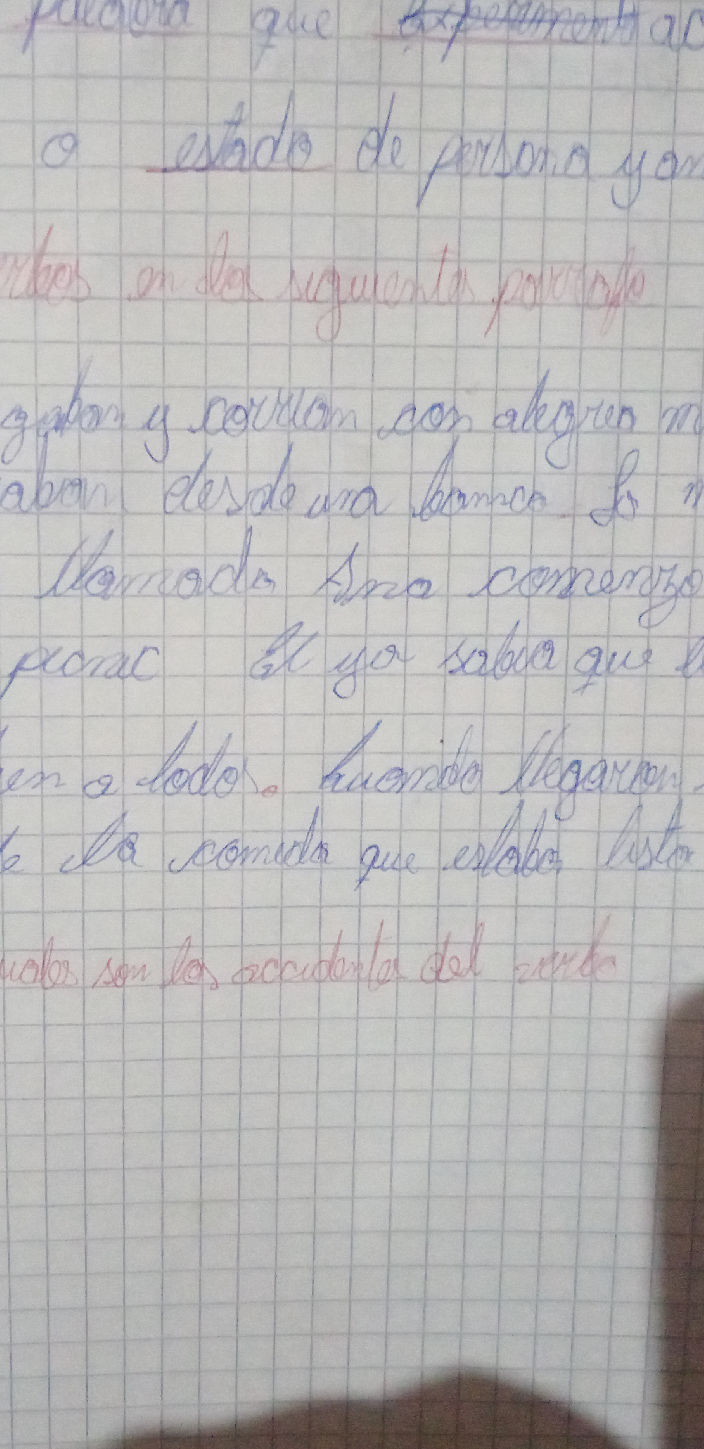 palabra que
o estado de persona y an
rbos en los siguientes parrafo
gaban y corrian con alegria m
aban desde una banca. la
llamada Ana comenzo
picnic El ya sabia que
en a todos. Cuando llegaron
la comida que estaba lista
uales son los accidentes del verbo